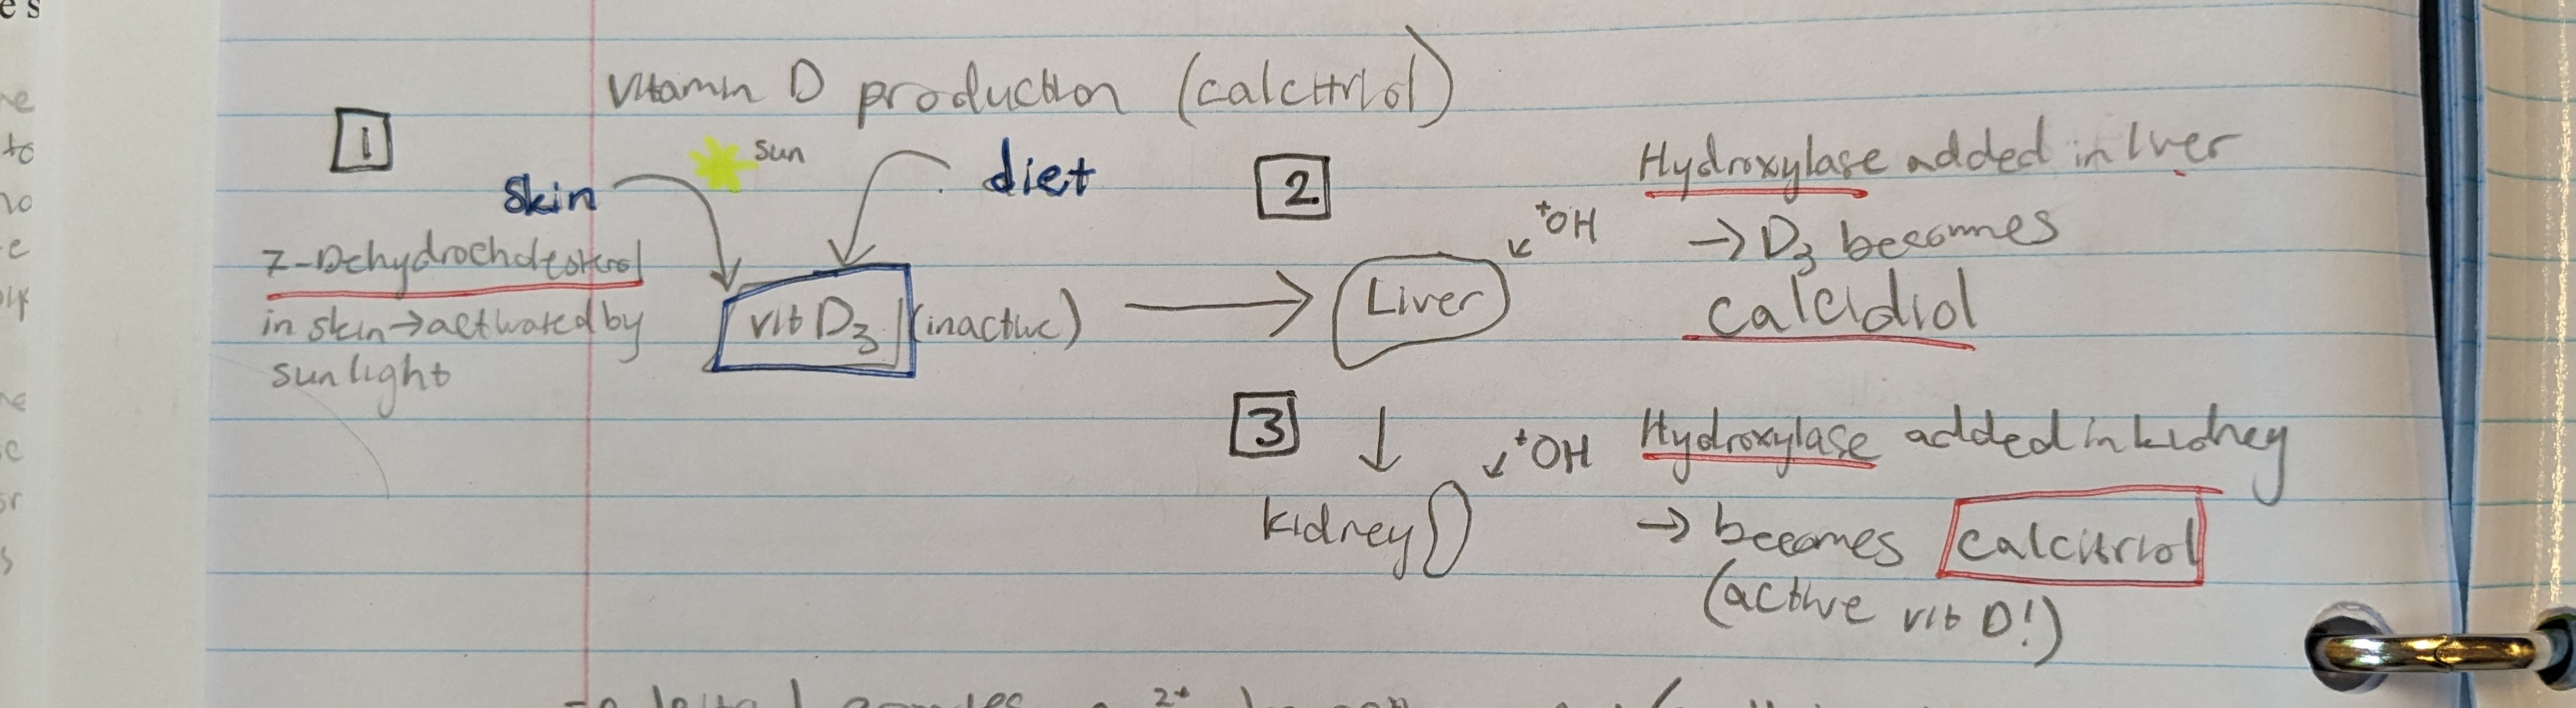 Vitamin D production (calcitriol)
1
sun
skin
diet
7-Dehydrocholesterol
in skin → activated by
sunlight
vit D3 (inactive)
2
Liver
+OH
Hydroxylase added in liver
→ D3 becomes
calcidiol
3
kidney
+OH
Hydroxylase added in kidney
→ becomes calcitriol
(active vit D!)